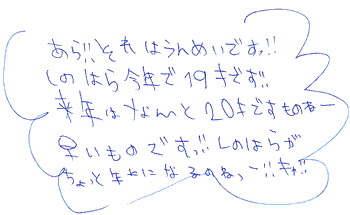 あら!!それはうんめいですっ!!
しのはら今年で19才です!!
来年はなんと20才ですものねー
早いものですっ!!しのはらが
ちょっと年上になるのねっー!!キャ!!